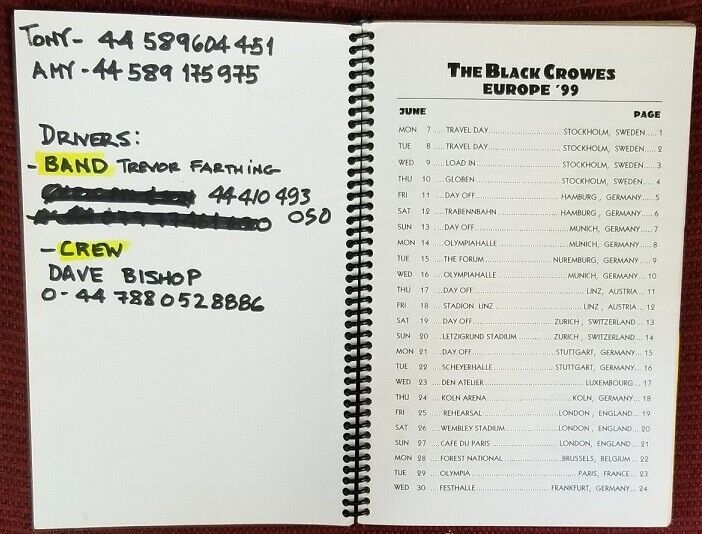 TONY- 44 589604451
AMY - 44 589 175975
DRIVERS:
- BAND TREVOR FARTHING
44 410 493
- 050
- CREW
DAVE BISHOP
0-44 7880528886
THE BLACK CROWES
EUROPE '99
JUNE PAGE
MON 7 ....TRAVEL DAY....STOCKHOLM, SWEDEN.....1
TUE 8 ....TRAVEL DAY....STOCKHOLM, SWEDEN.....2
WED 9 ....LOAD IN....STOCKHOLM, SWEDEN.....3
THU 10 ....GLOBEN....STOCKHOLM, SWEDEN.....4
FRI 11 ....DAY OFF....HAMBURG, GERMANY.....5
SAT 12 ....TRABENNBAHN....HAMBURG, GERMANY.....6
SUN 13 ....DAY OFF....MUNICH, GERMANY.....7
MON 14 ....OLYMPIAHALLE....MUNICH, GERMANY.....8
TUE 15 ....THE FORUM....NUREMBURG, GERMANY.....9
WED 16 ....OLYMPIAHALLE....MUNICH, GERMANY....10
THU 17 ....DAY OFF....LINZ, AUSTRIA....11
FRI 18 ....STADION LINZ....LINZ, AUSTRIA....12
SAT 19 ....DAY OFF....ZURICH, SWITZERLAND....13
SUN 20 ....LETZIGRUND STADIUM....ZURICH, SWITZERLAND....14
MON 21 ....DAY OFF....STUTTGART, GERMANY....15
TUE 22 ....SCHEYERHALLE....STUTTGART, GERMANY....16
WED 23 ....DEN ATELIER....LUXEMBOURG....17
THU 24 ....KOLN ARENA....KOLN, GERMANY....18
FRI 25 ....REHEARSAL....LONDON, ENGLAND....19
SAT 26 ....WEMBLEY STADIUM....LONDON, ENGLAND....20
SUN 27 ....CAFE DU PARIS....LONDON, ENGLAND....21
MON 28 ....FOREST NATIONAL....BRUSSELS, BELGIUM....22
TUE 29 ....OLYMPIA....PARIS, FRANCE....23
WED 30 ....FESTHALLE....FRANKFURT, GERMANY....24